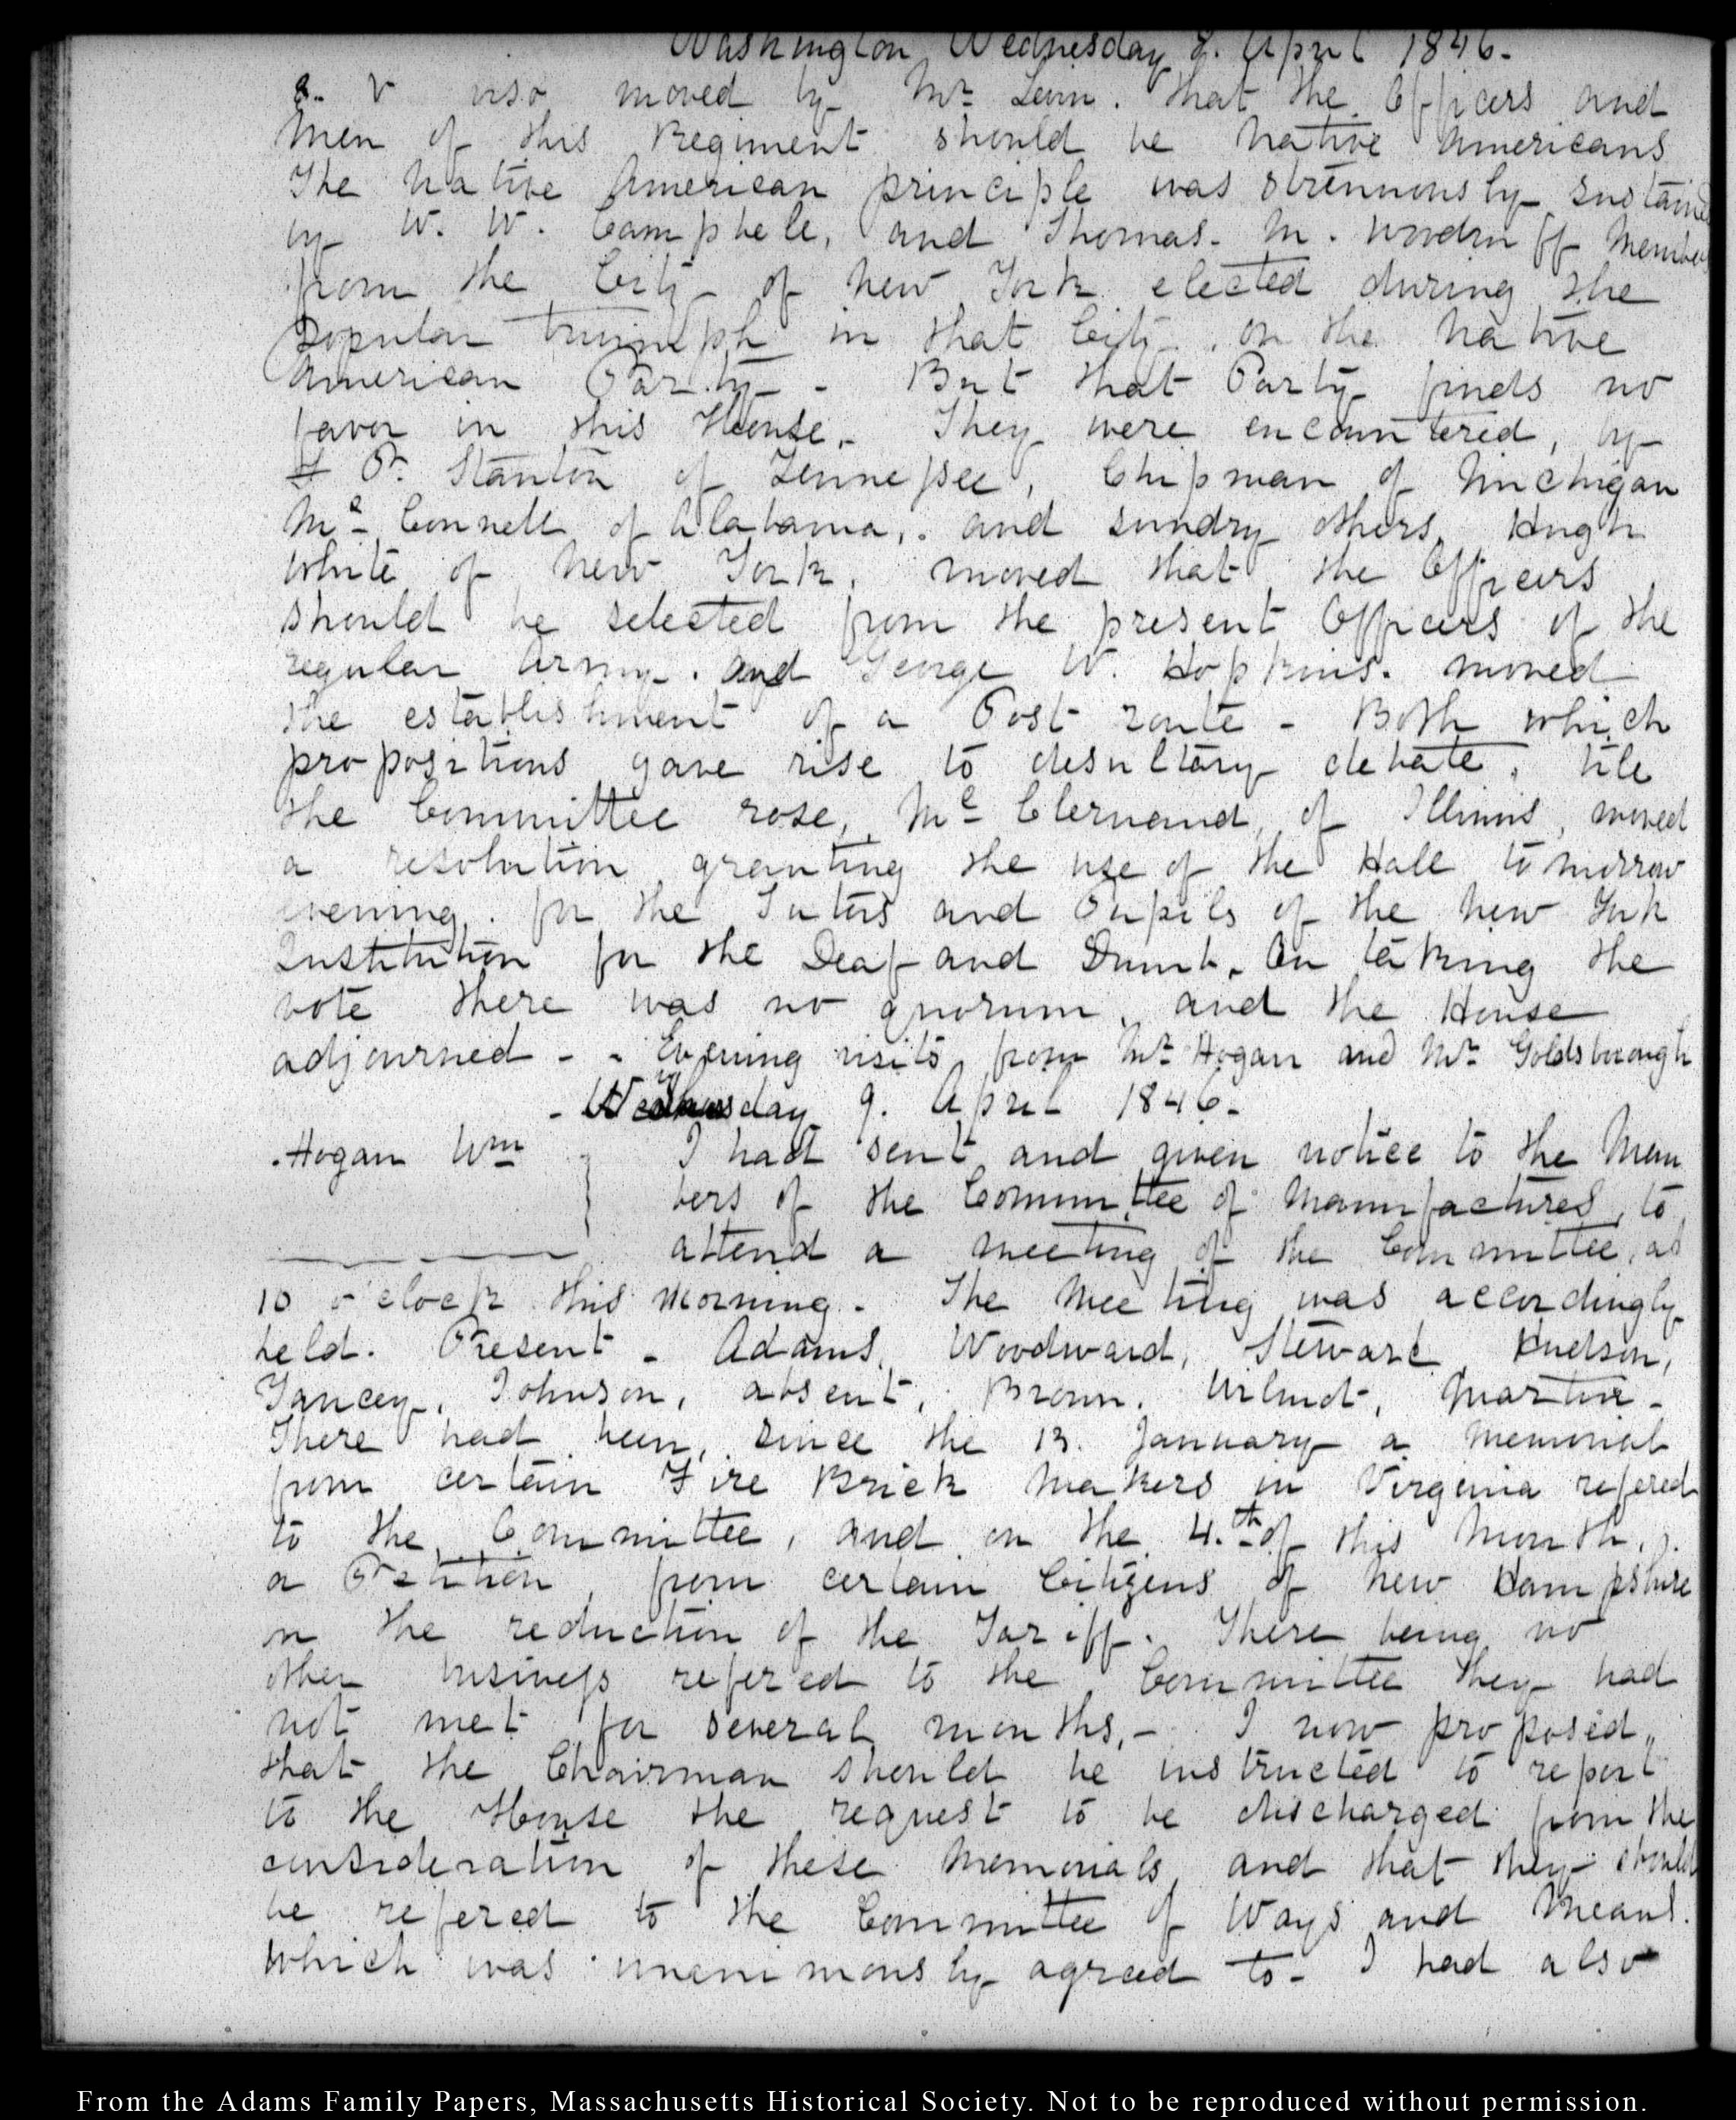 Washington Wednesday 8. April 1846.
8. V viso moved by Mr Levin. that the Officers and
Men of this Regiment should be Native Americans
The Native American principle was strenuously sustained
by W. W. Campbell, and Thomas. M. Woodruff Members
from the City of New York elected during the
popular triumph in that City. on the Native
American Party - But that Party finds no
favor in this House. They were encountered, by
F P. Stanton of Tennessee, Chipman of Michigan
Mc Connell of Alabama, and sundry others. Hugh
White of New York, moved that the Officers
should be selected from the present Officers of the
regular Army. and George W. Hopkins. moved
the establishment of a Post route - Both which
propositions gave rise to desultory debate, till
the Committee rose, Mc Clernand, of Illinois, moved
a resolution granting the use of the Hall tomorrow
evening. for the Tutors and Pupils of the New York
Institution for the Deaf and Dumb. On taking the
vote there was no quorum, and the House
adjourned - - Evening visits from Mr Hogan and Mr Goldsborough
- Thursday 9. April 1846-
.Hogan Wm I had sent and given notice to the Mem
bers of the Committee of Manufactures, to
attend a meeting of the Committee, at
10 o'clock this morning. The Meeting was accordingly
held. Present - Adams, Woodward, Stewart Hudson,
Yancey, Johnson, absent, Brown. Wilmot, Martin -
There had been, since the 13. January a Memorial
from certain Fire Brick Makers in Virginia refered
to the Committee, and on the 4.th of this Month,
a Petition, from certain Citizens of New Hampshire
on the reduction of the Tariff. There being no
other business refered to the Committee they had
not met for several months,- I now proposed,
that the Chairman should be instructed to report
to the House the request to be discharged from the
consideration of these Memorials and that they should
be refered to the Committee of Ways and Means.
which was unanimously agreed to - I had also
From the Adams Family Papers, Massachusetts Historical Society. Not to be reproduced without permission.